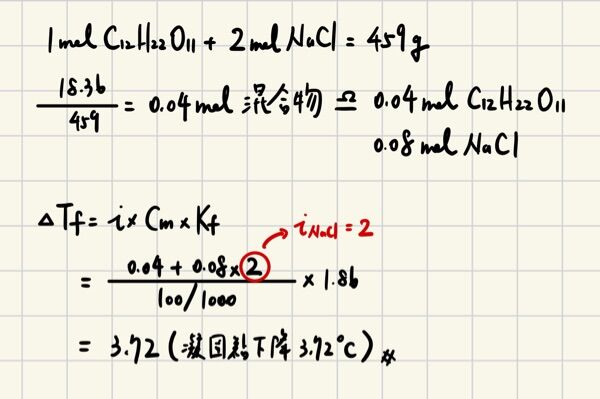 1mol C₁₂H₂₂O₁₁ + 2mol NaCl = 459g
18.36/459 = 0.04mol 混合物 ≏ 0.04mol C₁₂H₂₂O₁₁
0.08mol NaCl
ΔTf = i × Cm × Kf
→ iNaCl = 2
= (0.04 + 0.08×2)/(100/1000) × 1.86
= 3.72 (凝固點下降 3.72°C) #